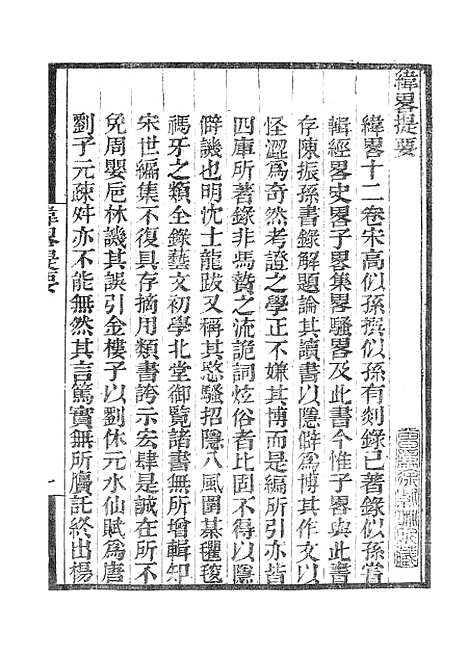 緯畧提要
緯畧十二卷宋高似孫撰似孫有剡錄已著錄似孫嘗
輯經畧史畧子畧集畧騷畧及此書今惟子畧與此書
存陳振孫書錄解題論其讀書以隱僻爲博其作文以
怪澀爲奇然考證之學正不嫌其博而是編所引亦皆
四庫所著錄非馮贄之流詭詞炫俗者比固不得以隱
僻譏也明沈士龍跋又稱其愍騷招隱八風圍棊瓊
禡牙之類全錄藝文初學北堂御覽諸書無所增輯知
宋世編集不復具存摘用類書誇示宏肆是誠在所不
免周嬰巵林譏其誤引金樓子以劉休元水仙賦爲唐
劉子元疎舛亦不能無然其言篤實無所贗託終出楊
緯畧提要
一